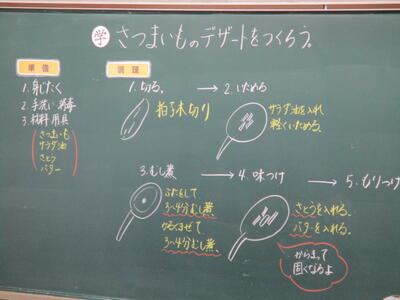 学 さつまいものデザートをつくろう。
準備
1. 身じたく
2. 手洗い 消毒
3 材料 用具
さつまいも
サラダ油
さとう
バター
調理
1. 切る。 → 2. いためる
拍子木切り
サラダ油を入れ
軽くいためる。
3. むし煮 → 4. 味つけ → 5. もりつけ
ふたをして
3~4分むし煮
かるくまぜて
3~4分むし煮。
さとうを入れる。
バターを入れる。
からまって
固くなるよ